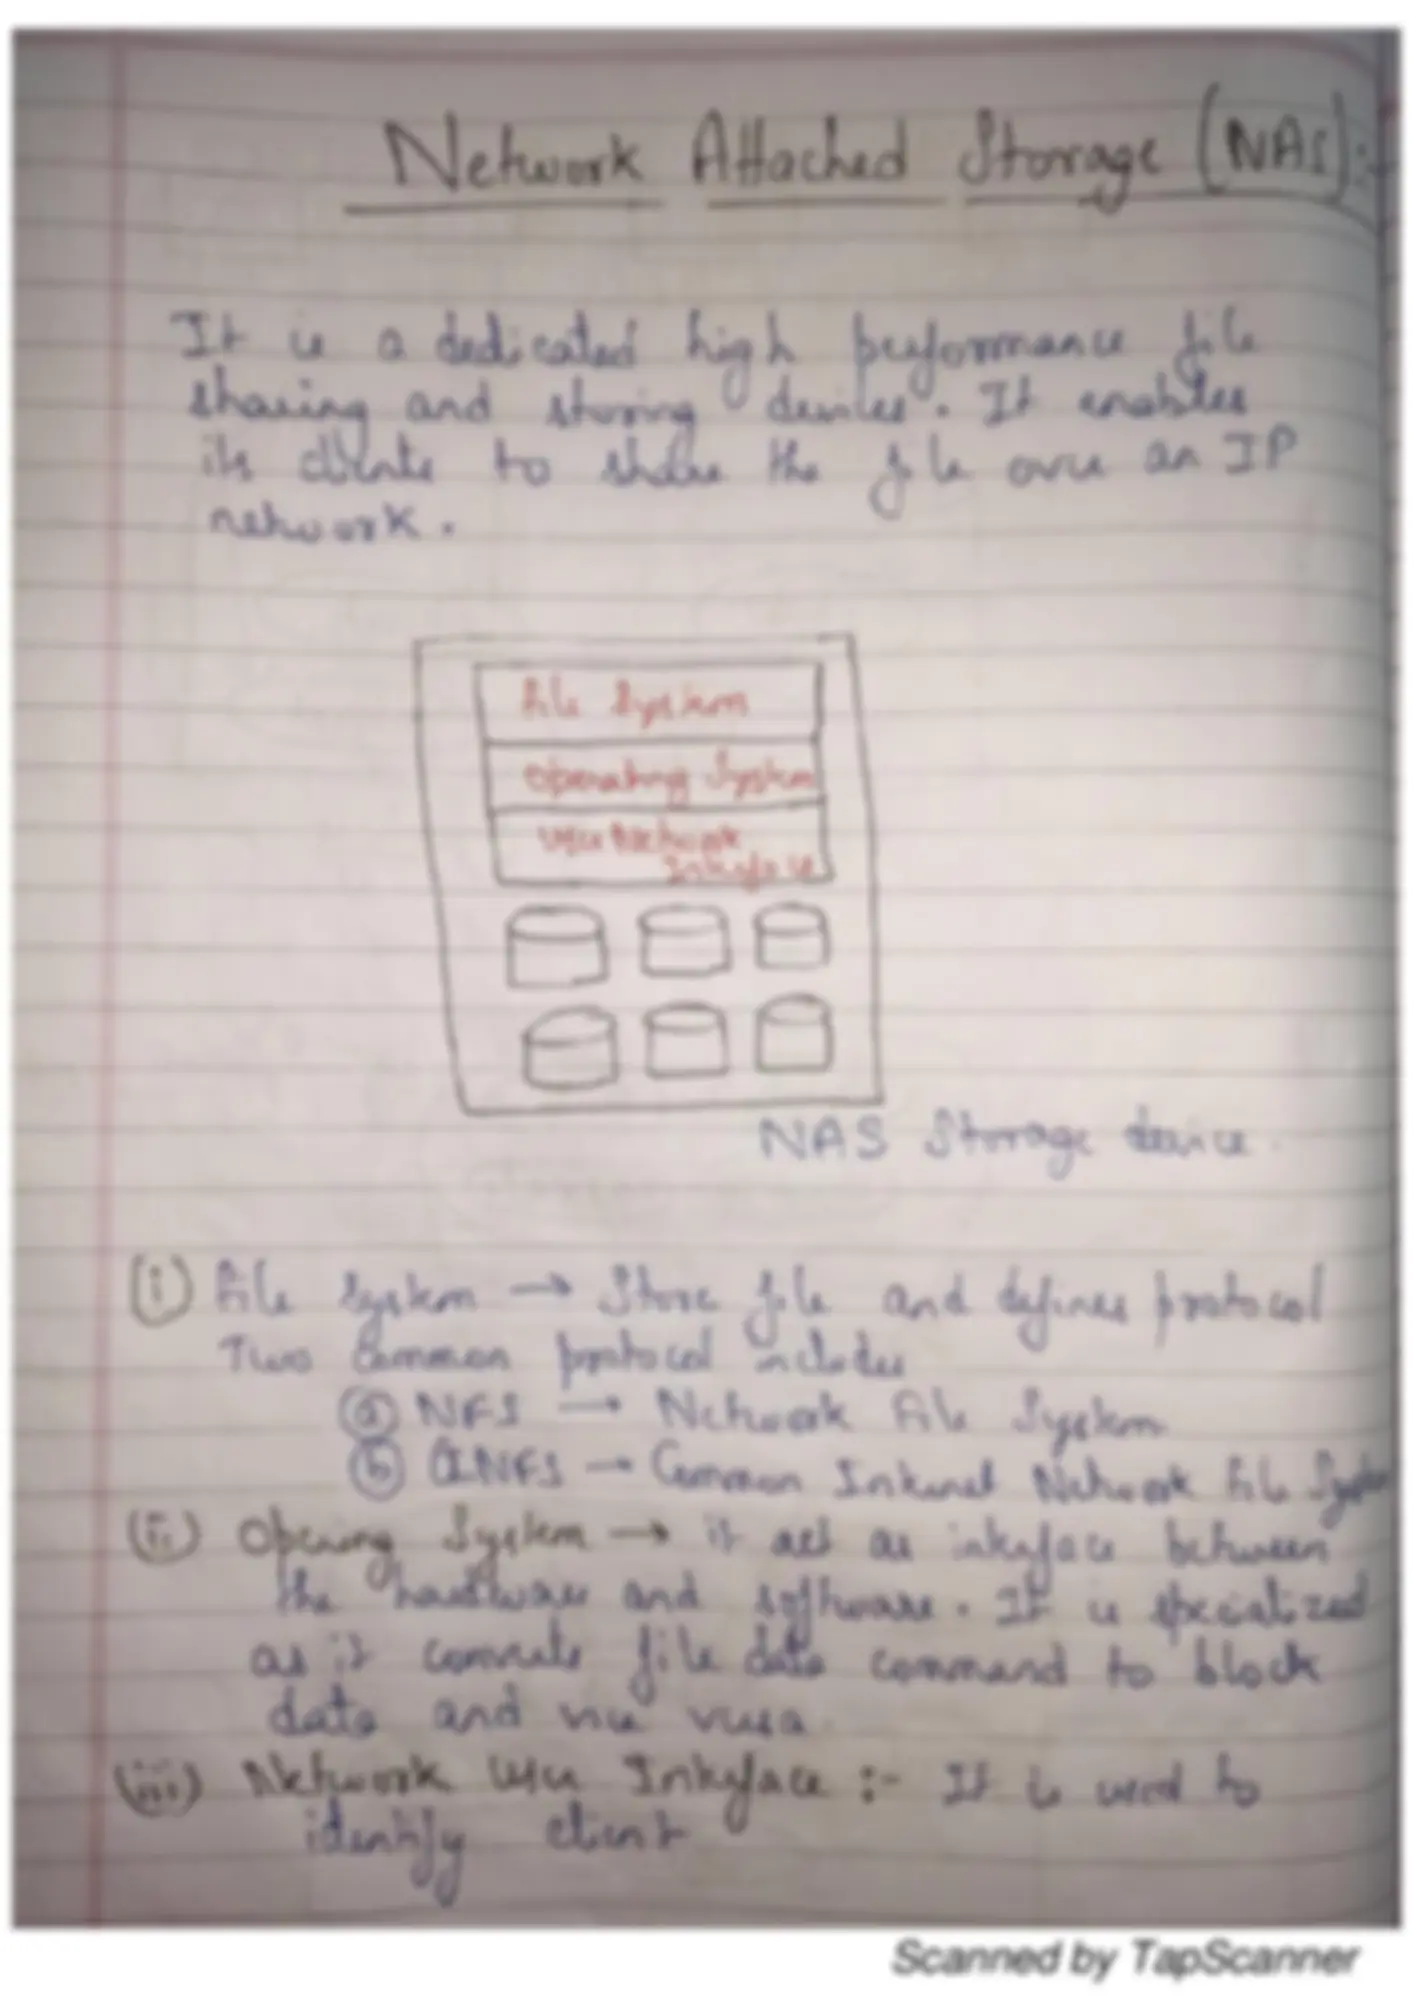 Network Attached Storage (NAS):-
It is a dedicated high performance file
sharing and storing devices. It enables
its clients to share the file over an IP
network.
File System
Operating System
User Network
Interface
NAS Storage device.
(i) File System → Store file and defines protocol
Two Common protocol includes
(a) NFS → Network File System
(b) → Common Internet Network File System
(ii) Opering System → it act as interface between
the hardware and software. It is specialized
as it file data command to block
data and vice versa.
(iii) Network User Interface :- It is used to
identify client
Scanned by TapScanner